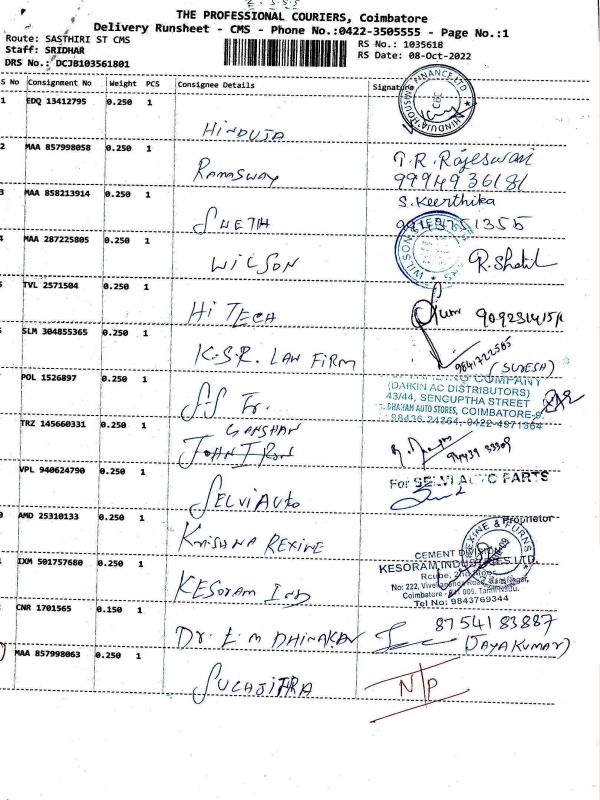 THE PROFESSIONAL COURIERS, Coimbatore
Delivery Runsheet - CMS - Phone No.:0422-3505555 - Page No.:1
Route: SASTHIRI ST CMS
Staff: SRIDHAR
DRS No.: DCJB103561801
RS No.: 1035618
RS Date: 08-Oct-2022
S No Consignment No Weight PCS Consignee Details Signature
1 EDQ 13412795 0.250 1
HINDUJA
2 MAA 857998058 0.250 1 T.R. Rajeswari
Ramasway 9994936181
3 MAA 858213914 0.250 1 S. Keerthika
SHETH
4 MAA 287225805 0.250 1
WILSON
TVL 2571504 0.250 1
Hi TECH
SLM 304855365 0.250 1
K.S.R. LAW FIRM (SURESH)
POL 1526897 0.250 1
COMPANY
(DAIKIN AC DISTRIBUTORS)
43/44, SENGUPTHA STREET
AUTO STORES, COIMBATORE-9.
TRZ 145660331 0.250 1
GANSHAN
VPL 940624790 0.250 1
For SELVI AUTO PARTS
SELVI AUTO
Proprietor
AMD 25310133 0.250 1
KRISHNA REXINE
IXM 501757680 0.250 1
CEMENT DIVISION
KESORAM INDUSTRIES LTD.
KESORAM IND
Tel No: 9843769344
CNR 1701565 0.150 1
Dr. E.M DHINAKAR 8754183887
(JAYAKUMAR)
MAA 857998063 0.250 1
SUCHJITHRA N/P